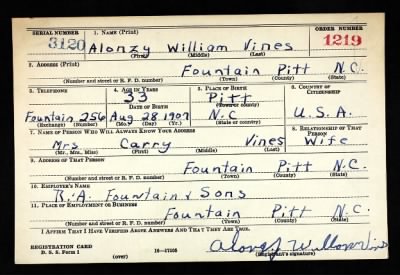 SERIAL NUMBER 1. NAME (Print) ORDER NUMBER
3120 Alonzy William Vines 1219
(First) (Middle) (Last)
2. ADDRESS (Print)
Fountain Pitt N.C.
(Number and street or R. F. D. number) (Town) (County) (State)
3. TELEPHONE 4. AGE IN YEARS 5. PLACE OF BIRTH 6. COUNTRY OF CITIZENSHIP
33 Pitt
DATE OF BIRTH (Town or county)
Fountain 256 Aug 28 1907 N.C U.S.A.
(Exchange) (Number) (Mo.) (Day) (Yr.) (State or country)
7. NAME OF PERSON WHO WILL ALWAYS KNOW YOUR ADDRESS 8. RELATIONSHIP OF THAT PERSON
Mrs. Carry Vines Wife
(Mr., Mrs., Miss) (First) (Middle) (Last)
9. ADDRESS OF THAT PERSON
Fountain Pitt N.C.
(Number and street or R. F. D. number) (Town) (County) (State)
10. EMPLOYER'S NAME
R.A. Fountain & Sons
11. PLACE OF EMPLOYMENT OR BUSINESS
Fountain Pitt N.C.
(Number and street or R. F. D. number) (Town) (County) (State)
I AFFIRM THAT I HAVE VERIFIED ABOVE ANSWERS AND THAT THEY ARE TRUE.
REGISTRATION CARD
D. S. S. Form 1 (over) 16-17105 (Registrant's signature)